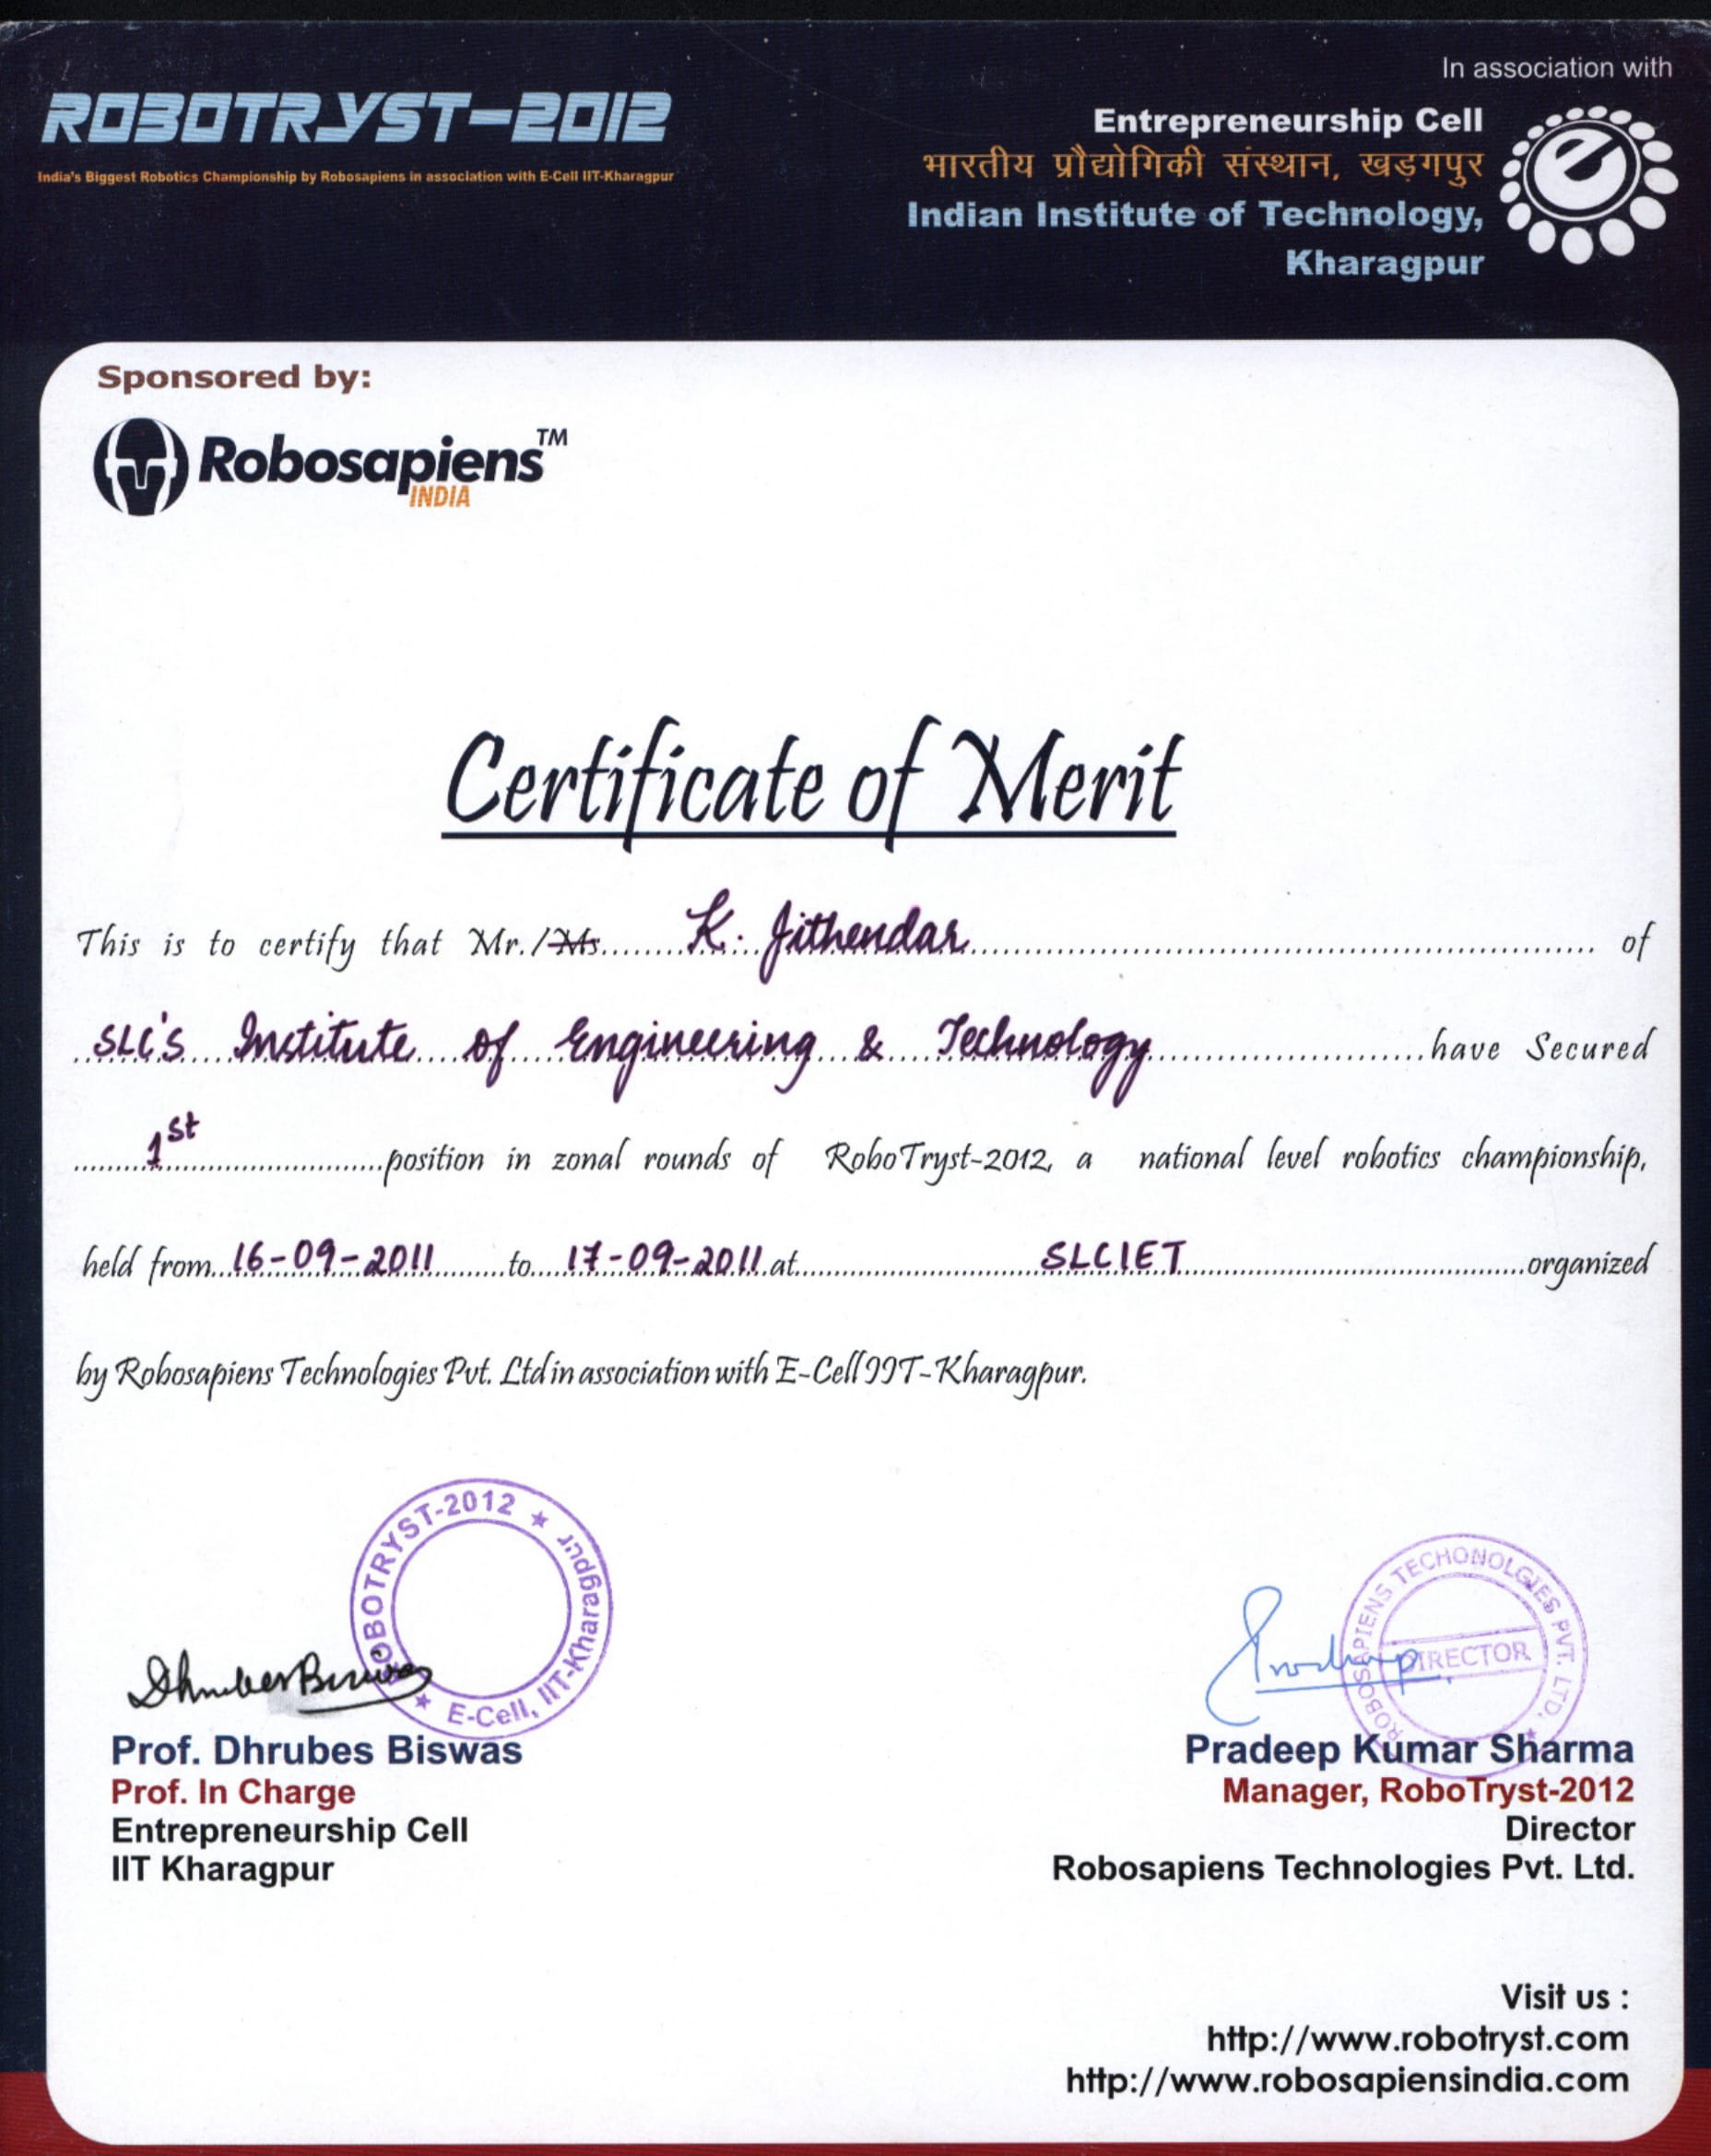 In association with
ROBOTRYST-2012
India's Biggest Robotics Championship by Robosapiens in association with E-Cell IIT-Kharagpur
Entrepreneurship Cell
भारतीय प्रौद्योगिकी संस्थान, खड़गपुर
Indian Institute of Technology,
Kharagpur
e
Sponsored by:
Robosapiens™
INDIA
Certificate of Merit
This is to certify that Mr./Ms. K. Jithendar of
SLC's Institute of Engineering & Technology have Secured
1st position in zonal rounds of RoboTryst-2012, a national level robotics championship,
held from 16-09-2011 to 17-09-2011 at SLCIET organized
by Robosapiens Technologies Pvt. Ltd in association with E-Cell IIT-Kharagpur.
ROBOTRYST-2012 ★ E-Cell, IIT-Kharagpur ★
ROBOSAPIENS TECHONOLGIES PVT. LTD. ★
DIRECTOR
Dhrubes Biswas
Pradeep
Prof. Dhrubes Biswas
Prof. In Charge
Entrepreneurship Cell
IIT Kharagpur
Pradeep Kumar Sharma
Manager, RoboTryst-2012
Director
Robosapiens Technologies Pvt. Ltd.
Visit us :
http://www.robotryst.com
http://www.robosapiensindia.com